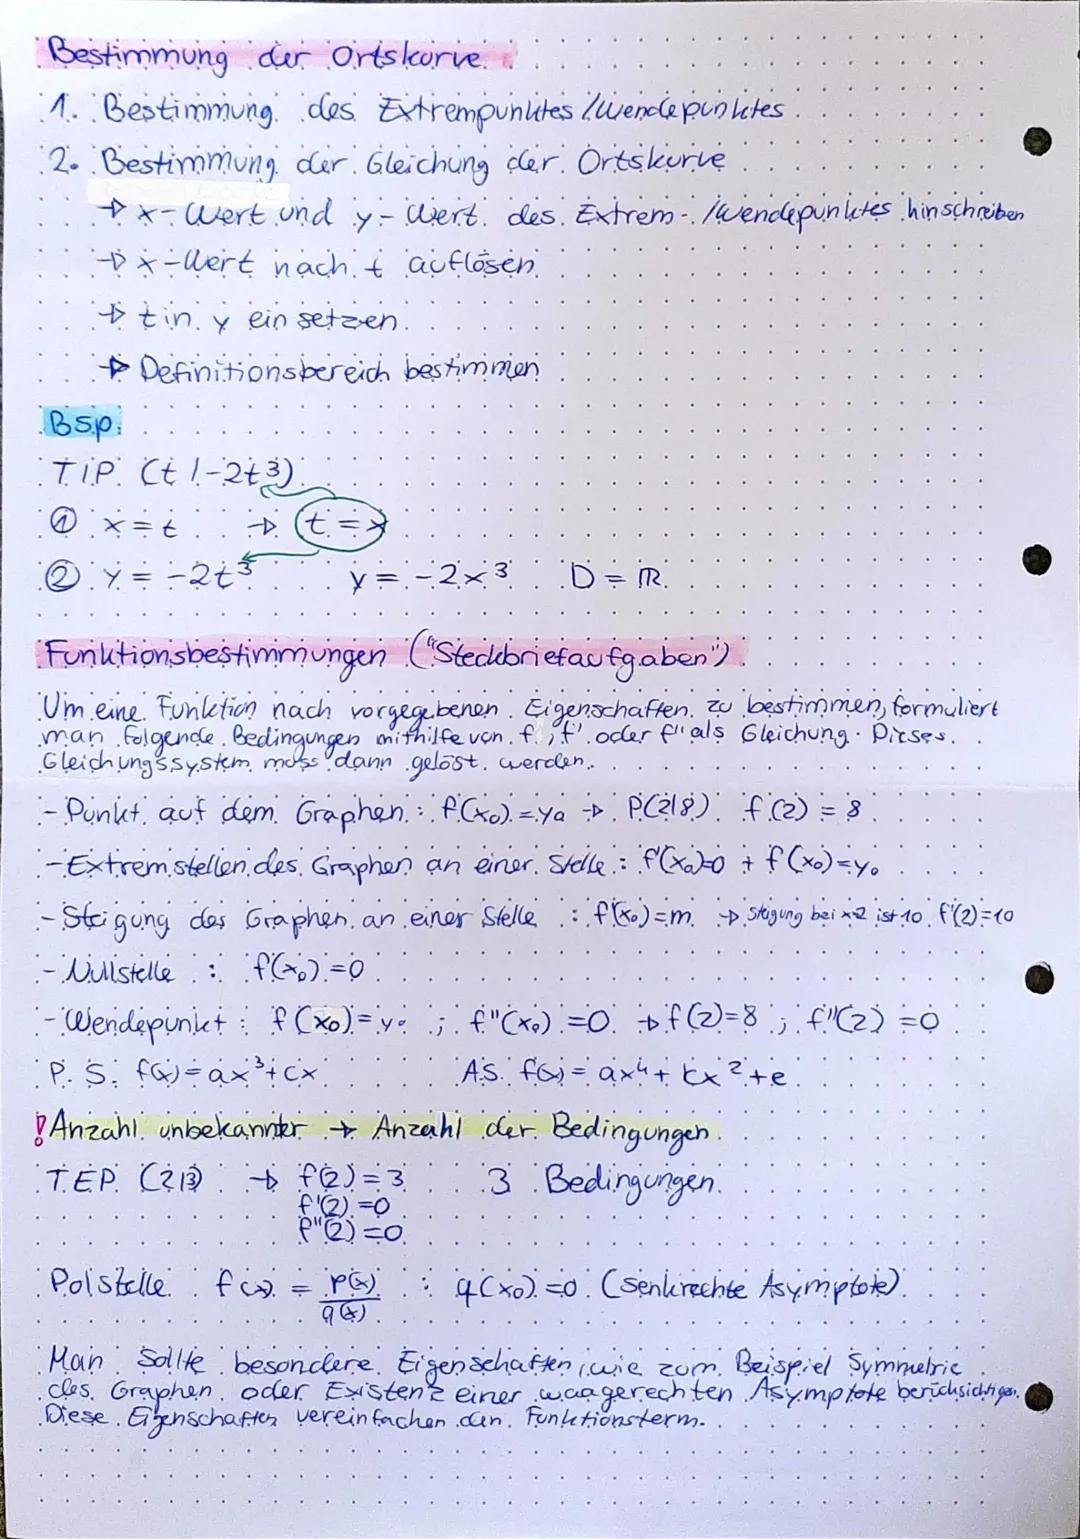 Bestimmung der Ortskurve
1. Bestimmung des Extrempunktes /Wendepunktes
2. Bestimmung der Gleichung der Ortskurve
→ x-Wert und y-Wert des Extrem-/Wendepunktes hinschreiben
→ x-Wert nach t auflösen
→ t in y einsetzen
→ Definitionsbereich bestimmen
Bsp:
T.I.P. (t | -2t³)
① x = t → t = x
② y = -2t³ y = -2x³ D = ℝ
Funktionsbestimmungen ("Steckbriefaufgaben")
Um eine Funktion nach vorgegebenen Eigenschaften zu bestimmen, formuliert
man folgende Bedingungen mithilfe von f, f' oder f'' als Gleichung. Dieses
Gleichungssystem muss dann gelöst werden.
- Punkt auf dem Graphen: f(x₀) = ya → P(2|8) f(2) = 8
- Extremstellen des Graphen an einer Stelle: f'(x₀)=0 + f(x₀)=y₀
- Steigung des Graphen an einer Stelle : f'(x₀)=m → Steigung bei x=2 ist 10 f'(2)=10
- Nullstelle : f(x₀)=0
- Wendepunkt : f(x₀)=y₀ ; f"(x₀)=0 → f(2)=8 ; f"(2)=0
P.S: f(x)=ax³+cx A.S. f(x)=ax⁴+cx²+e
! Anzahl unbekannter → Anzahl der Bedingungen
T.E.P. (2|3) → f(2)=3 3 Bedingungen
f'(2)=0
f"(2)=0
Polstelle f(x) = p(x)/q(x) : q(x₀)=0 (Senkrechte Asymptote)
Man Sollte besondere Eigenschaften, wie zum Beispiel Symmetrie
des Graphen oder Existenz einer waagerechten Asymptote berücksichtigen.
Diese Eigenschaften vereinfachen den Funktionsterm.